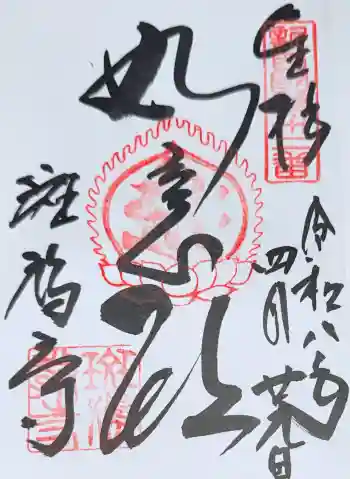 奉拝
令和八年
四月
如意輪
斑鳩寺